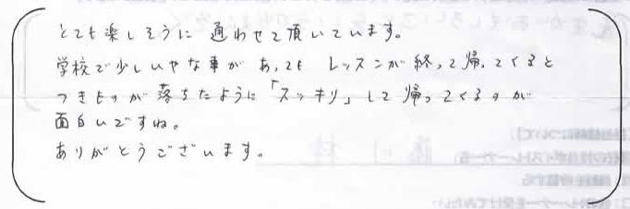 とても楽しそうに 通わせて頂いています。
学校で少しいやな事があっても レッスンが終って帰ってくると
つきものが落ちたように「スッキリ」して帰ってくるのが
面白いですね。
ありがとうございます。